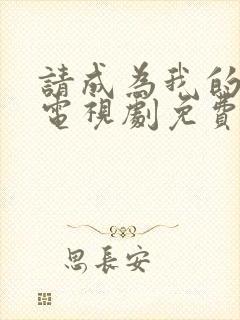 請成為我的
電視劇免費
思長安